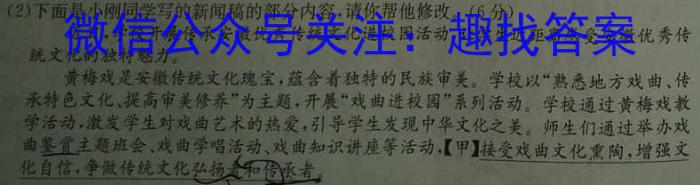 (2)下面是小刚同学写的新闻稿的部分内容,请你帮他修改。(6分)
微信公众号关注：趣找答案
统文化的独特魅力。
黄梅戏是安徽传统文化瑰宝,蕴含着独特的民族审美。学校以“熟悉地方戏曲、传
承特色文化、提高审美修养”为主题,开展“戏曲进校园”系列活动。学校通过黄梅戏教
学活动,激发学生对戏曲艺术的热爱,引导学生发现中华文化之美。师生们通过举办戏
曲鉴赏主题班会、戏曲学唱活动、戏曲知识讲座等活动,【甲】接受戏曲文化熏陶,增强文
化自信,争做传统文化弘扬者和传承者。